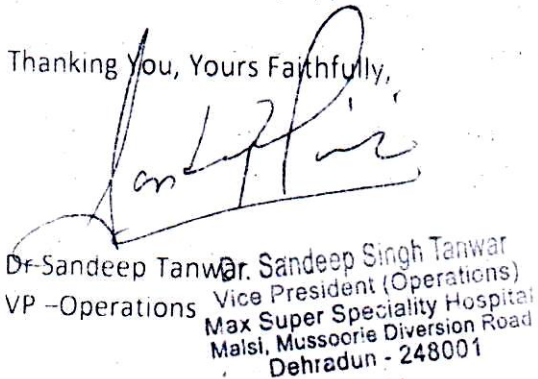 Thanking You, Yours Faithfully,
Dr Sandeep Tanwar
VP –Operations
Dr. Sandeep Singh Tanwar
Vice President (Operations)
Max Super Speciality Hospital
Malsi, Mussoorie Diversion Road
Dehradun - 248001